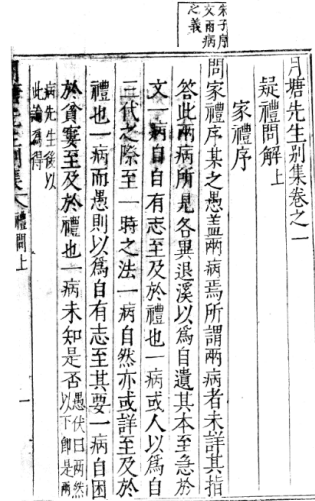 朱子序
文兩病
之義
月塘先生別集卷之一
疑禮問解上
家禮序
問家禮序某之愚盖兩病焉所謂兩病者未詳其指
答此兩病所見各異退溪以爲自遺其本至急於
文一病自自有志至及於禮也一病或人以爲自
三代之際至一時之法一病自然亦或詳至及於
禮也一病而愚則以爲自有志至其要一病自困
於貧窶至及於禮也一病未知是否愚伏曰兩然
以下卽是兩
病先生後以
此論爲得
月塘先生別集
卷一
禮問上
一